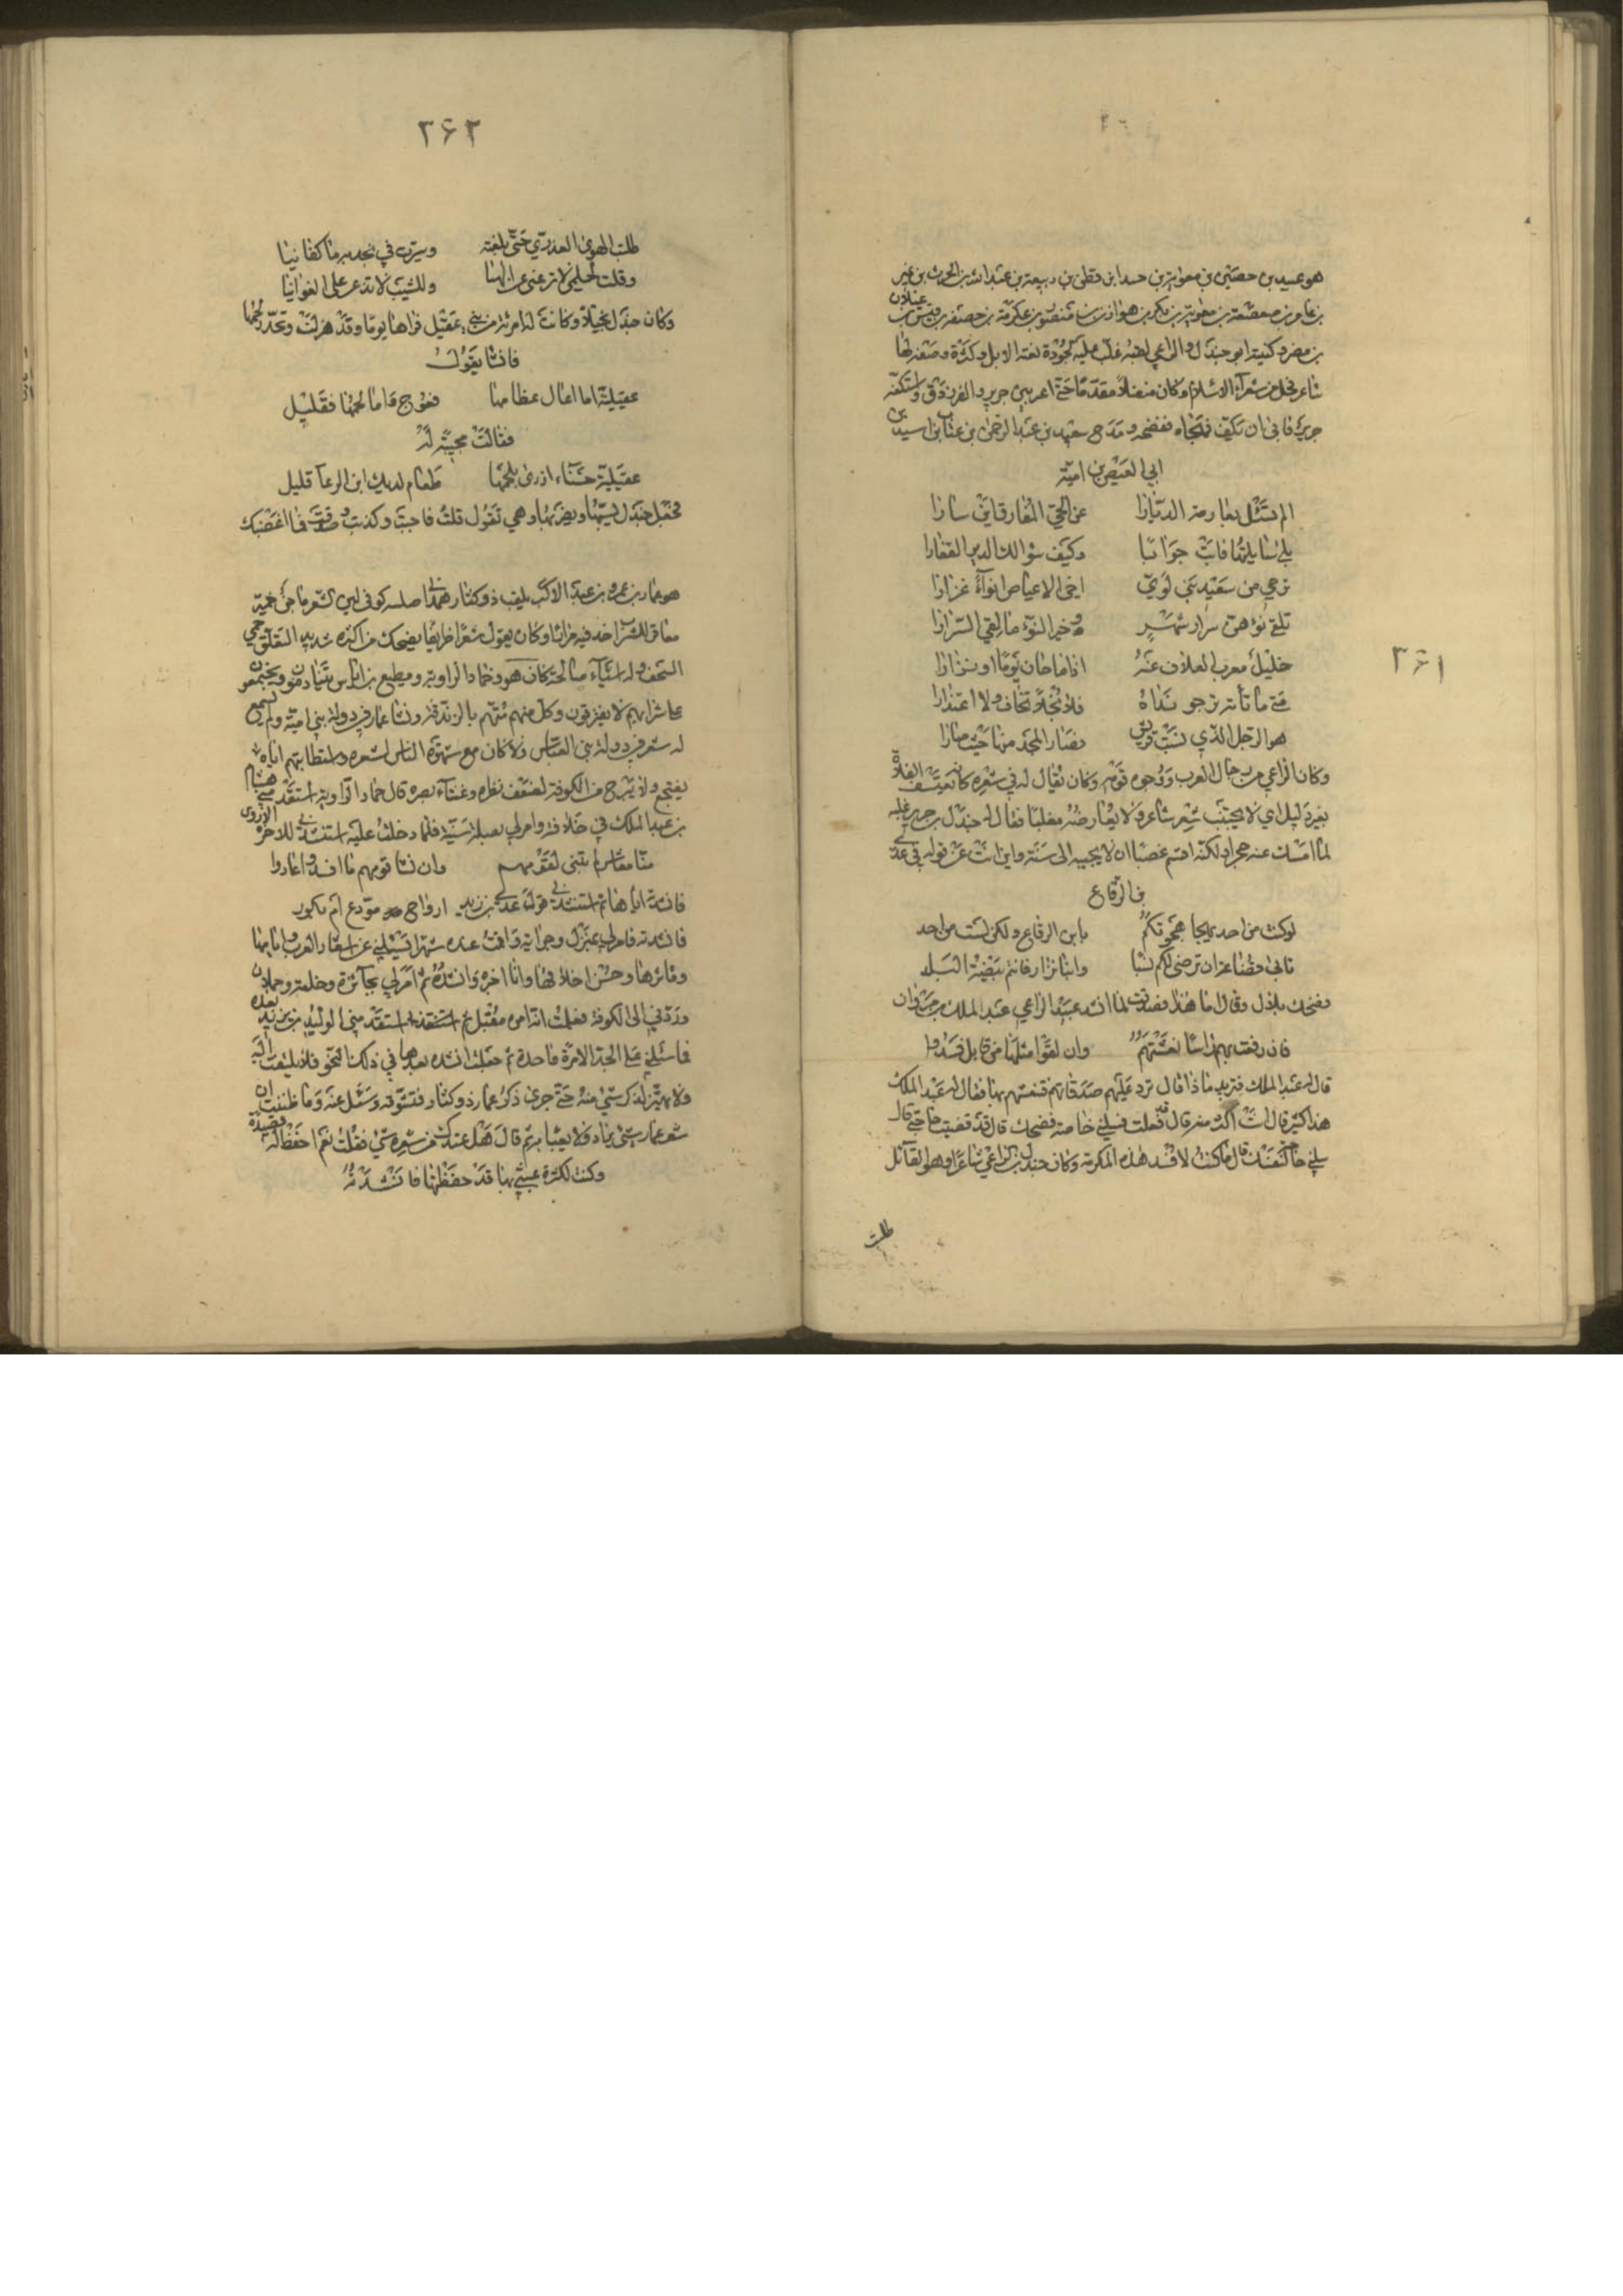 ٣٦١
هو عبيد بن حصين بن معوية بن جندل بن قطن بن ربيعة بن عبد الله بن الحرث بن نمير
بن عامر بن صعصعة بن معوية بن بكر بن هوازن بن منصور بن عكرمة بن خصفة بن قيس بن عيلان
بن مضر وكنيته ابو جندل والراعي لقبه غلب عليه لجودة نعته الابل وكثرة وصفه لها
شاعر فحل من شعرآء الاسلام وكان مقدما حتى اعترض بين جرير والفرزدق واستكفه
جرير فابى ان يكف فهجاه ففضحه ومدح سعيد بن عبد الرحمن بن عتاب بن اسيد بن
ابي العيص بن امية
الم تسئل بعارمة الديارا عن الحي المفارق اين سارا
بلى سايلتها فابت جوابا وكيف سوالك الدمن القفارا
نرجي من سعيد بني لوي اخي الاعياص انوآءً غزارا
تلقى نؤهن سرار شهر وخير النوء ما لقي السرارا
خليل معزب العلات عنه اذا ما حان يوما ان يزارا
متى ما تأته ترجو نداه فلا بخلا تخاف ولا اعتذارا
هو الرجل الذي نسبت قريش فصار المجد منها حيث صارا
وكان الراعي من رجال العرب ووجوه قومه وكان يقال له في شعره كانه يعتسف الفلاة
بغير دليل اي لا يحتذي شعر شاعر ولا يعارضه مغلبا فقال له جندل
لما امسك عنه عجزا ولكنه اقسم غضبا ان لا يجيبه الى سنة واين انت عن قوله في عدي
بن الرقاع
لو كنت من احد يهجا هجوتكم يا بن الرقاع ولكن لست من احد
تابى قضاعة ان ترضى لكم نسبا وابنا نزار فانتم بيضة البلد
فضحك بلال وقال اما هذا فصدقت لما انشد عبيد الراعي عبد الملك بن مروان
فان رفعت بهم راسا نعشتهم وان لقوا مثلها من قابل فسدوا
قال له عبد الملك فتريد ماذا قال ترد عليهم صدقاتهم فتنعشهم بها فقال له عبد الملك
هذا كثير قال انت اكثر منه قال قد فعلت فسلني خاصة فضحك قال قد قضيت حاجتي قال
سلني حاجتك لنفسك قال ما كنت لافسد هذه المكرمة وكان جندل بن الراعي شاعرا وهو القآئل
طلبت
٣٦٢
طلبت الهوى العذري حتى بلغته وسيرت في نجديه ما كفانيا
وقلت لحلمي لا تزعني عن الصبا وللشيب لا تذعر على الغوانيا
وكان جندل بخيلا وكانت له امرئة من بني عقيل فراها يوما وقد هزلت وتخدد لحمها
فانشا يقول
عقيلية اما اعال عظامها فعوج واما لحمها فقليل
فقالت مجيبة له
عقيلية حسناء ازرى بلحمها طعام لديك ابن الرعآء قليل
فجعل جندل يسبها ويضربها وهي تقول قلت فاجبت وكذبت وصدقت فما اغضبك
هو عمار بن عمرو بن عبد الاكبر يلقب ذو كناز همداني اصله كوفي لين الشعر ماجن خمير
معاقر للشراب احد فيه مراتا وكان يقول شعرا ظريفا يضحك من اكثره شديد التعلق جم
السخف وله اشياء صالحة كان هو وحماد الراوية ومطيع بن اياس يتنادمون ويجتمعون
على شرابهم لا يفترقون وكل منهم متهم بالزندقة ونشا عمار في دولة بني امية ولم يسمع
له شعر في دولة بني العباس ولا كان مع شهوة الناس لشعره واستطابتهم اياه
ينتجع ولا يبرح من الكوفة لضعف نظره وعشآء بصره قال حماد الراوية استقدمني هشام
بن عبد الملك في خلافته وامر لي بصلة سنية فلما دخلت عليه استنشدني للافوه الاودي
منا معاشر لم تبنى لقومهم وان بنا قومهم ما افسدوا عادوا
فانشدته اياها ثم استنشدني قول عدي بن زيد ارواح مودع ام بكور
فانشدته فامر لي بمنزل وجراية فاقمت عنده شهرا فسئلني عن اشعار العرب وايامها
ومآثرها وحسن اخلاقها وانا اخبره وانشده ثم امر لي بجآئزة وخلعة وحملان
وردني الى الكوفة فعلمت ان امره مقبل ثم استقدمني الوليد بن يزيد بعده
فما سئلني على الجد الا مرة واحدة ثم جعلت انشده بعدها في ذلك النحو فلا يلتفت اليه
ولا يهتز لذكر شيء منه حتى جرى ذكر عمار ذو كناز فتشوقه وسئل عنه وما ظننت ان
شعر عمار شيء يراد ولا يعبا به ثم قال هل عندك من شعره شيء فقلت نعم احفظ له قصيدة
وكنت لكثرة عبثي بها قد حفظتها فانشدته